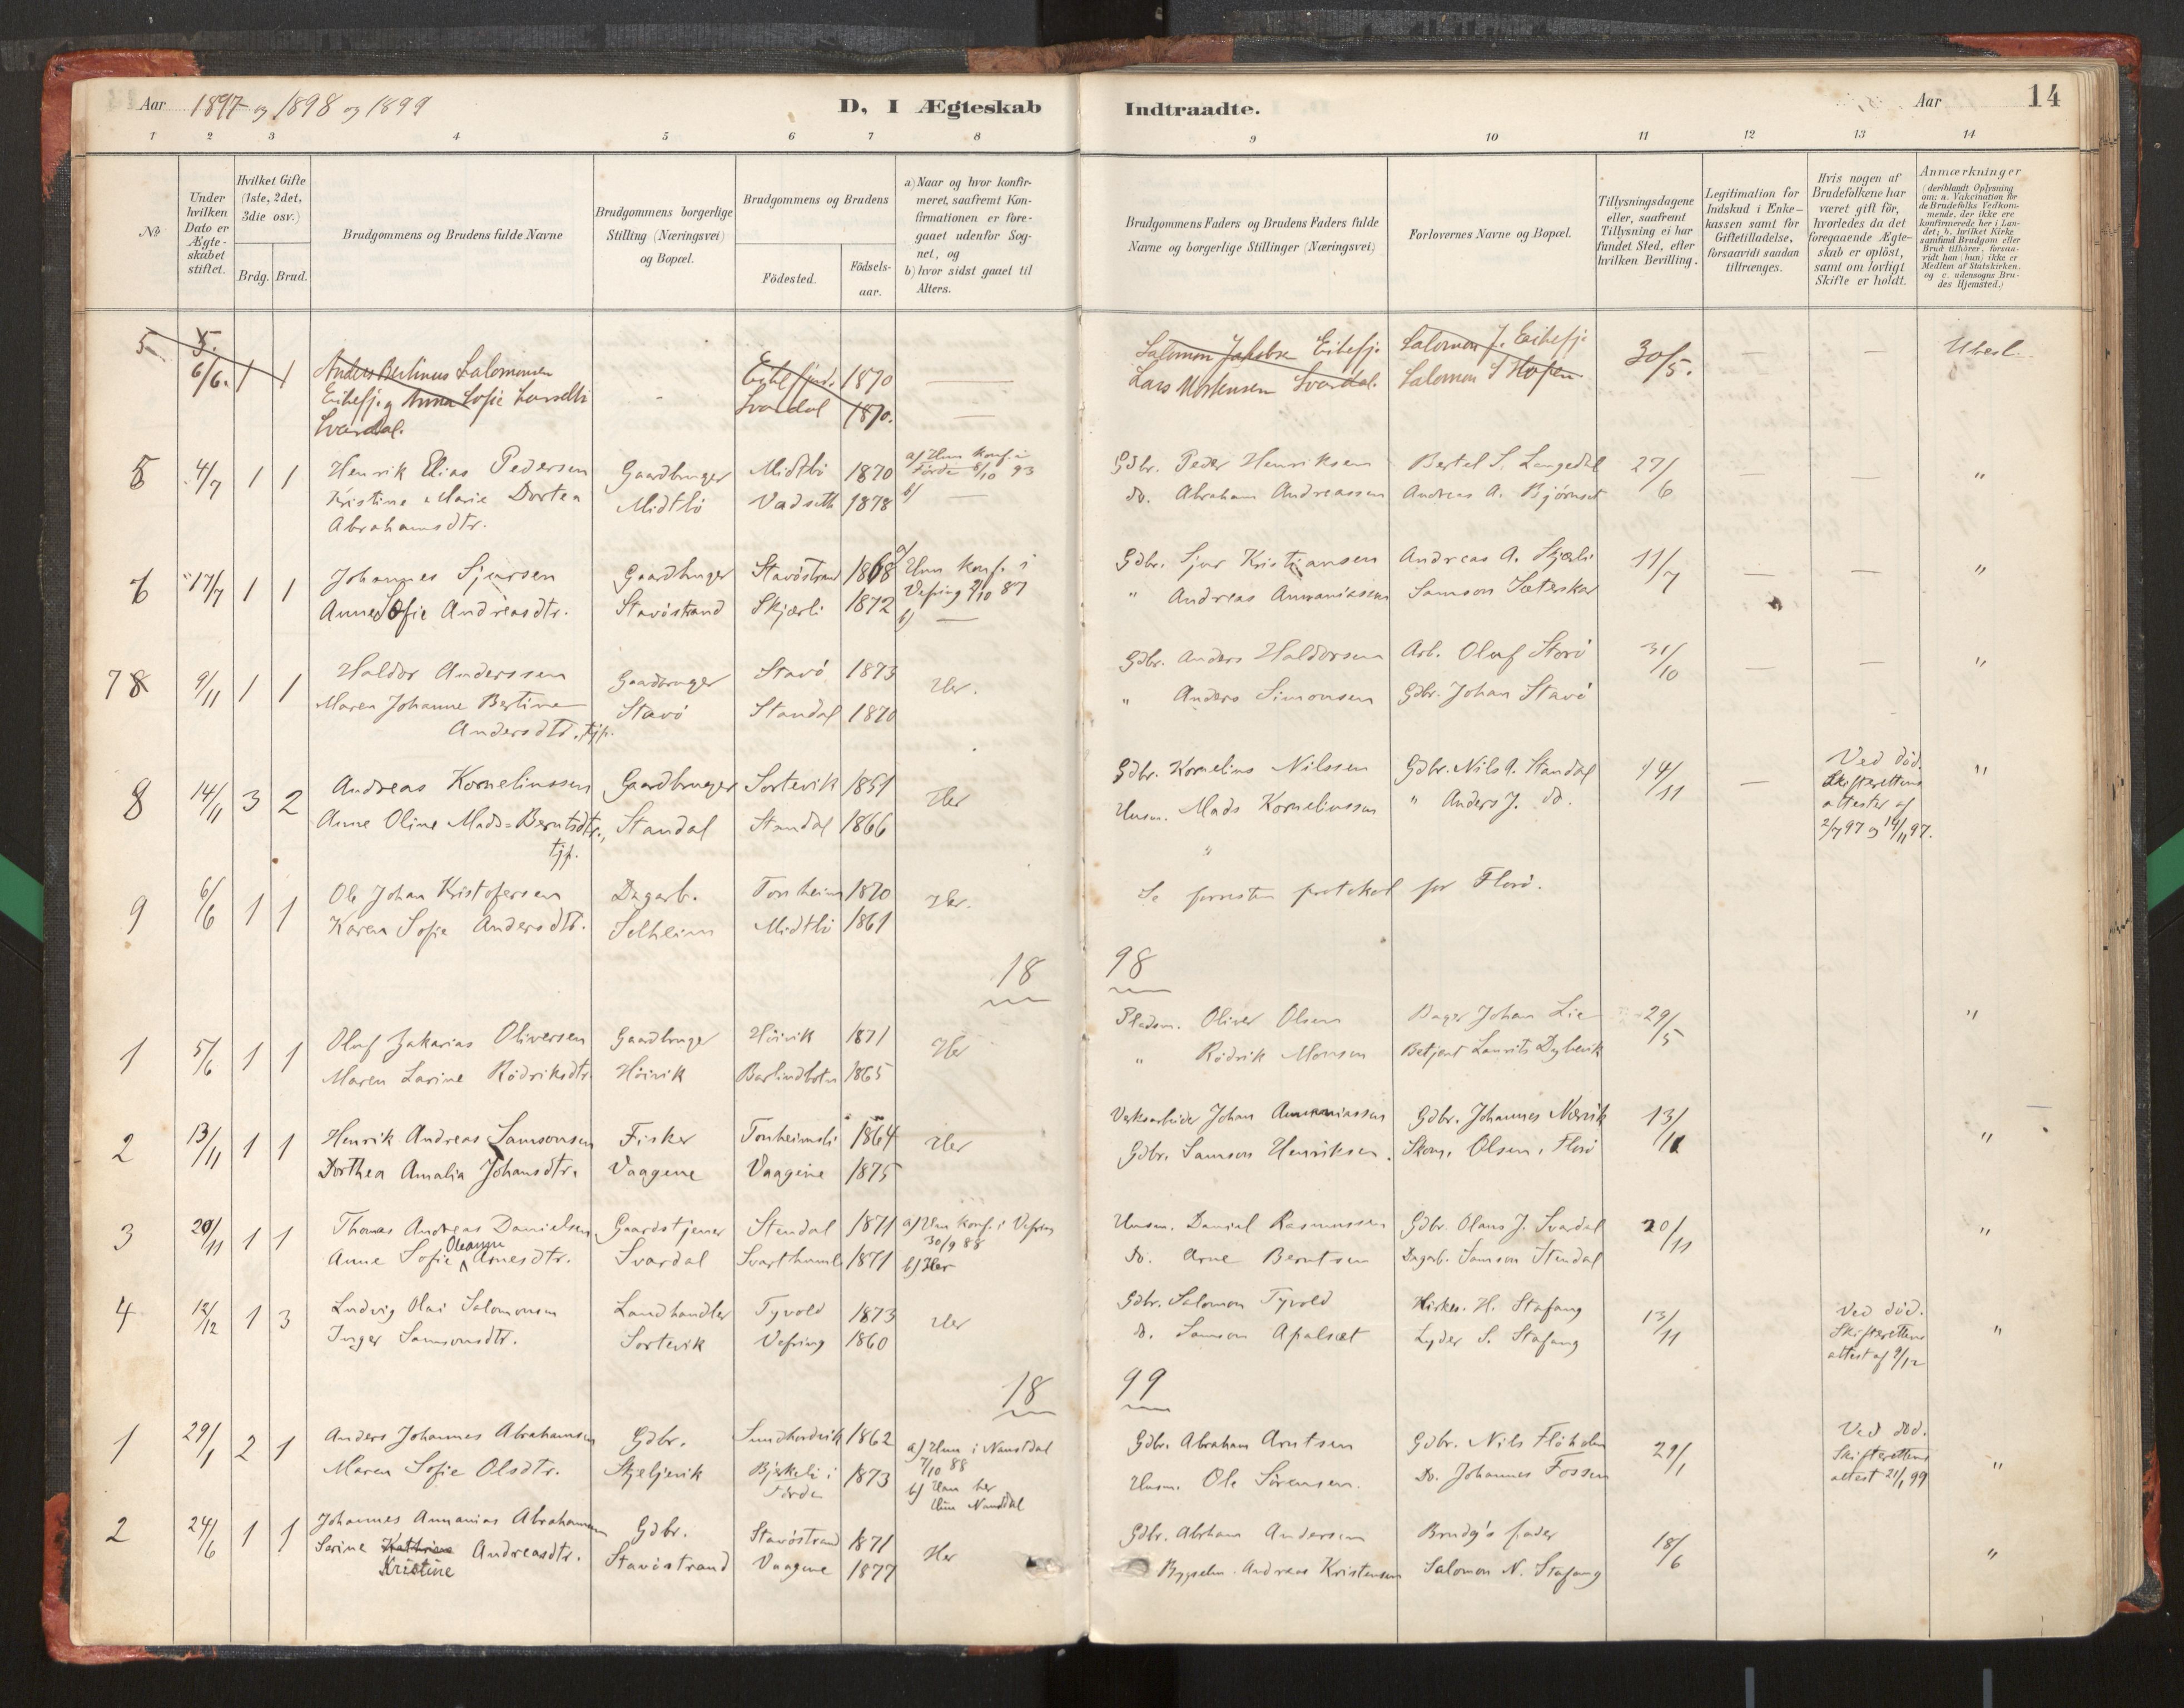 Aar 1897 og 1898 og 1899
D, I Ægteskab
Indtraadte.
Aar
14
1 2 3 4 5 6 7 8 9 10 11 12 13 14
No
Under hvilken Dato er Ægteskabet stiftet.
Hvilket Gifte (1ste, 2det, 3die osv.)
Brdg. Brud.
Brudgommens og Brudens fulde Navne
Brudgommens borgerlige Stilling (Næringsvei) og Bopæl.
Brudgommens og Brudens
Födested.
Födsels-aar.
a) Naar og hvor konfirmeret, saafremt Konfirmationen er foregaaet udenfor Sognet, og
b) hvor sidst gaaet til Alters.
Brudgommens Faders og Brudens Faders fulde Navne og borgerlige Stillinger (Næringsvei)
Forlovernes Navne og Bopæl.
Tillysningsdagene eller, saafremt Tillysning ei har fundet Sted, efter hvilken Bevilling.
Legitimation for Indskud i Enkekassen samt for Giftetilladelse, forsaavidt saadan tiltrænges.
Hvis nogen af Brudefolkene har været gift för, hvorledes da det foregaaende Ægteskab er oplöst, samt om lovligt Skifte er holdt.
Anmærkninger
(deriblandt Oplysning om: a. Vakcination for de Brudefolks Vedkommende, der ikke ere konfirmerede her i Landet; b. hvilket Kirkesamfund Brudgom eller Brud tilhörer, forsaavidt han (hun) ikke er Medlem af Statskirken. og c. udensogns Brudes Hjemsted.)
5 5. 6/6. 1 1 Anders Bertinus Salomonsen 1870 Salomon Jakobsen Eikefj. Salomon J. Eikefj. 30/5. — —
Eikefj. og Anna Sofie Svardal 1870. Lars Mortensen Svardal. Salomon S
Svardal.
5 4/7 1 1 Henrik Elias Pedersen Gaardbruger Midtbö 1870 a) Hun konf. i Förde 8/10 93 Gdbr. Peder Henriksen Bertel S. Langedal 27/6 — — "
Kristine Marie Dortea Midtbö Vadseth 1878 b) — do. Abraham Andreassen Andreas A. Bjørnset
Abrahamsdtr.
6 17/7 1 1 Johannes Sjursen Gaardbruger Stavöstrand 1868 a/ Hun konf. i Gdbr. Sjur Kristiansen Andreas A. Skjærli 11/7 — — "
Anne Sofie Andreasdtr. Stavöstrand Skjærli 1872 Vefring 2/10 87 b) — " Andreas Annaniasen Samson Sæterskar
7 8 9/11 1 1 Haldor Anderssen Gaardbruger Stavö 1873 Her. Gdbr. Anders Haldorsen Arb. Oluf Storö 31/10 — — "
Maren Johanne Bertine Stavö Standal 1870 " Anders Simonsen Gdbr. Johan Stavö
Andersdtr. tjp.
8 14/11 3 2 Andreas Korneliussen Gaardbruger Sortevik 1851 Her Gdbr. Kornelius Nilssen Gdbr. Nils A. Standal 14/11 — Ved död. "
Anne Oline Mads-Berntsdtr., Standal Standal 1866 Husm. Mads Korneliussen " Anders J. do. Skifterettens attester af 2/7 97 og 14/11 97.
tjp. "
9 6/6 1 1 Ole Johan Kristofersen Dagarb. Tonheim 1870 Her. Se forresten protokol for Florö.
Karen Sofie Andersdtr. Selheim Midtbö 1861
18 98
1 5/6 1 1 Oluf Zakarias Oliversen Gaardbruger Höivik 1871 Her Pladsm. Oliver Olsen Bager Johan Lie 29/5 "
Maren Larine Rödriksdtr. Höivik Barlindbotn 1865 " Rödrik Monsen Betjent Laurits Dybevik
2 13/11 1 1 Henrik Andreas Samsonsen Fisker Tonheimsli 1864 Her Johan Annaniassen Gdbr. Johannes Nærvik 13/11 "
Dorthea Amalia Johansdtr. Vaagene Vaagene 1875 Gdbr. Samson Henriksen. Skom. Olsen, Florö
3 20/11 1 1 Thomas Andreas Danielsen Gaardstjener Stendal 1871 a) Hun konf. i Vefring 30/9 88 Husm. Daniel Rasmussen Gdbr. Olaus J. Svardal 20/11 "
Anne Sofie Oleanne Arnesdtr. Svardal Svarthumle 1871 b) Her do. Arne Berntsen Dagarb. Samson Stendal
4 12/12 1 3 Ludvig Olai Salomonsen Landhandler Tyvold 1873 Her Gdbr. Salomon Tyvold H. Stafang 13/11 Ved död. "
Inger Samsonsdtr. Sortevik Vefring 1860 do. Samson Apalset Lyder S. Stafang Skifterettens attest af 9/12
18 99
1 29/1 2 1 Anders Johannes Abrahamsen Gdbr. Sundhordvik 1862 a) Hun i Naustdal 7/10 88 Gdbr. Abraham Arntsen Gdbr. Nils Flöholm 29/1 Ved död. "
Maren Sofie Olsdtr. Skjeljevik Bjerkeli i Förde 1873 b) Han her Hun Naustdal Husm. Ole Sörensen. Do. Johannes Fossen Skifterettens attest 21/1 99
2 24/6 1 1 Johannes Annanias Abrahamsen Gdbr. Stavöstrand 1871 Her Gdbr. Abrham Andersen Brudg's fader 18/6 "
Serine Kathrine Andreasdtr. Stavöstrand Vaagene 1877 Bygselm. Andreas Kristensen Salomon N. Stafang
Kristine